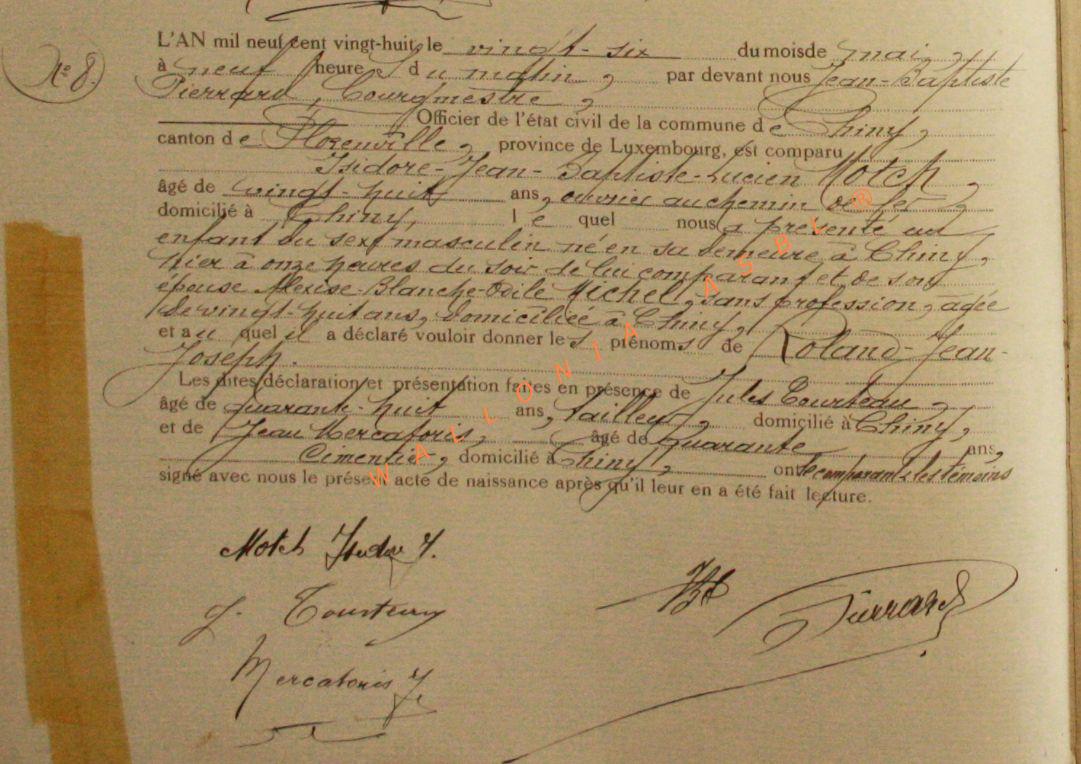 N° 8.
L'AN mil neuf cent vingt-huit, le vingt-six du mois de mai,
à neuf heures du matin, par devant nous Jean-Baptiste
Pierrard, Bourgmestre,
Officier de l'état civil de la commune de Chiny,
canton de Florenville, province de Luxembourg, est comparu
Isidore-Jean-Baptiste-Lucien Motch,
âgé de vingt-huit ans, ouvrier au chemin de fer,
domicilié à Chiny, lequel nous a présenté un
enfant du sexe masculin né en sa demeure à Chiny,
hier à onze heures du soir de lui comparant et de son
épouse Alexise-Blanche-Odile Michel, sans profession, agée
de vingt-huit ans, domiciliée à Chiny,
et au quel il a déclaré vouloir donner les prénoms de Roland-Jean-
Joseph.
Les dites déclaration et présentation faites en présence de Jules
âgé de quarante-huit ans, tailleur, domicilié à Chiny,
et de Jean Mercatoris, âgé de quarante ans,
Cimentier, domicilié à Chiny, ont le comparant & les témoins
signé avec nous le présent acte de naissance après qu'il leur en a été fait lecture.
Motch Isidore J.
J.
Mercatoris J
JB Pierrard
WALLONIA ASBL ®